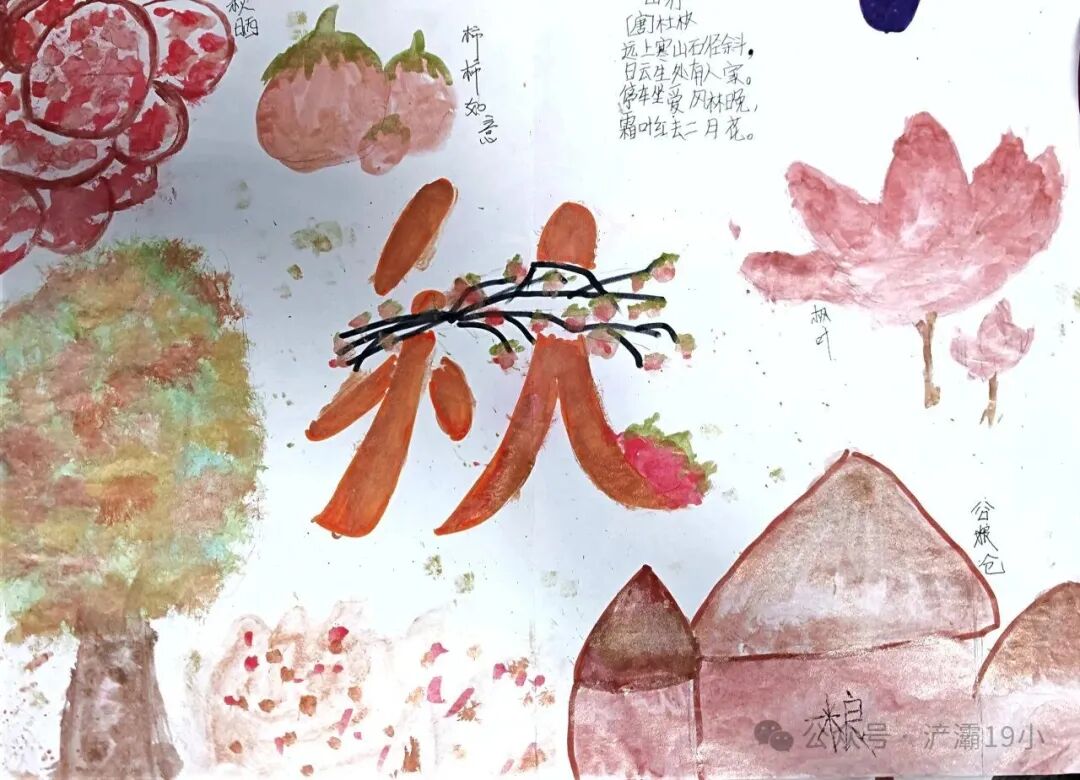 秋晒
柿柿如意
山行
[唐]杜牧
远上寒山石径斜,
白云生处有人家。
停车坐爱风林晚,
霜叶红去二月花。
秋
枫叶
谷粮仓
粮
公众号·浐灞19小